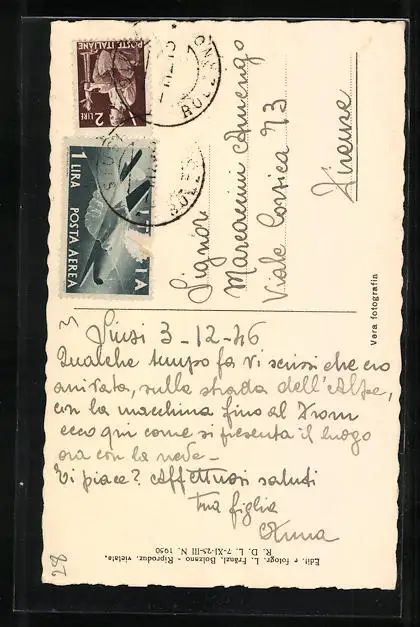 POSTE ITALIANE
2 LIRE
1 LIRA POSTA AEREA
ITALIA
Signor
Marcaccini Amengo
Viale Corsica 73
Firenze
Vera fotografia
Siusi 3-12-46
Qualche tempo fa vi scrissi che ero
arrivata, sulla strada dell'Alpe,
con la macchina fino al
ecco qui come si presenta il luogo
ora con la neve -
Vi piace? Affettuosi saluti
tua figlia
Anna
Edit. e fotogr. L. Fränzl, Bolzano - Riproduz. vietata.
R. D. L. 7-XI-25-III N. 1950